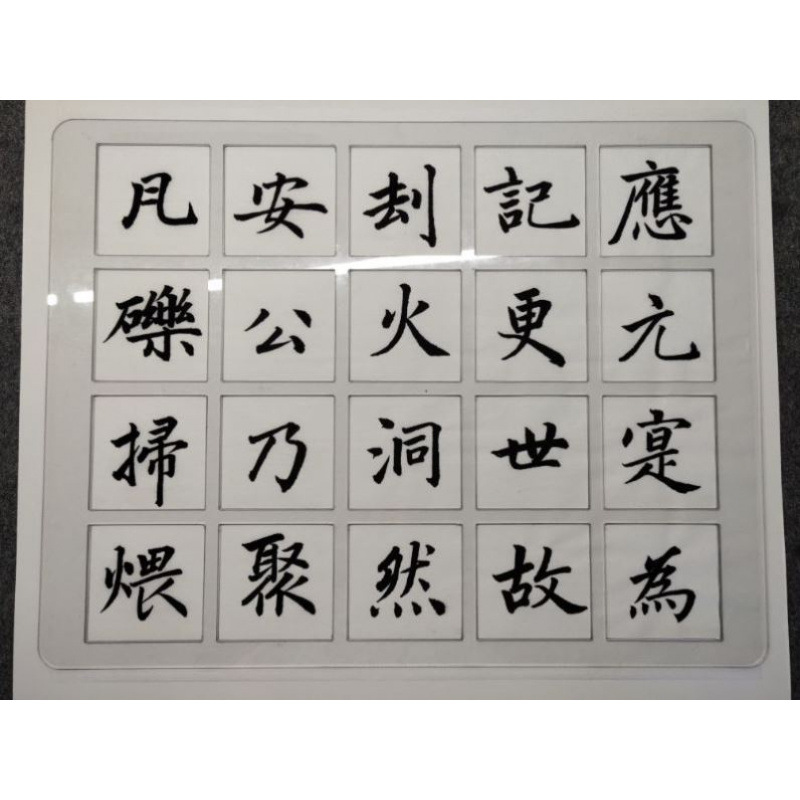 應元寔為
記更世故
刦火洞然
安公乃聚
瓦礫掃煨